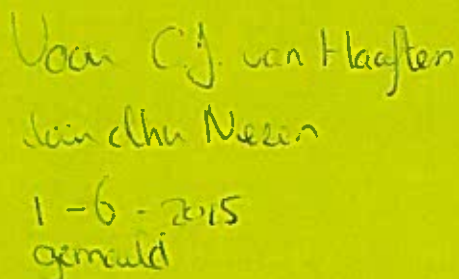 Voor C.J. van Haaften
Niezen
1-6-2015
gemaild